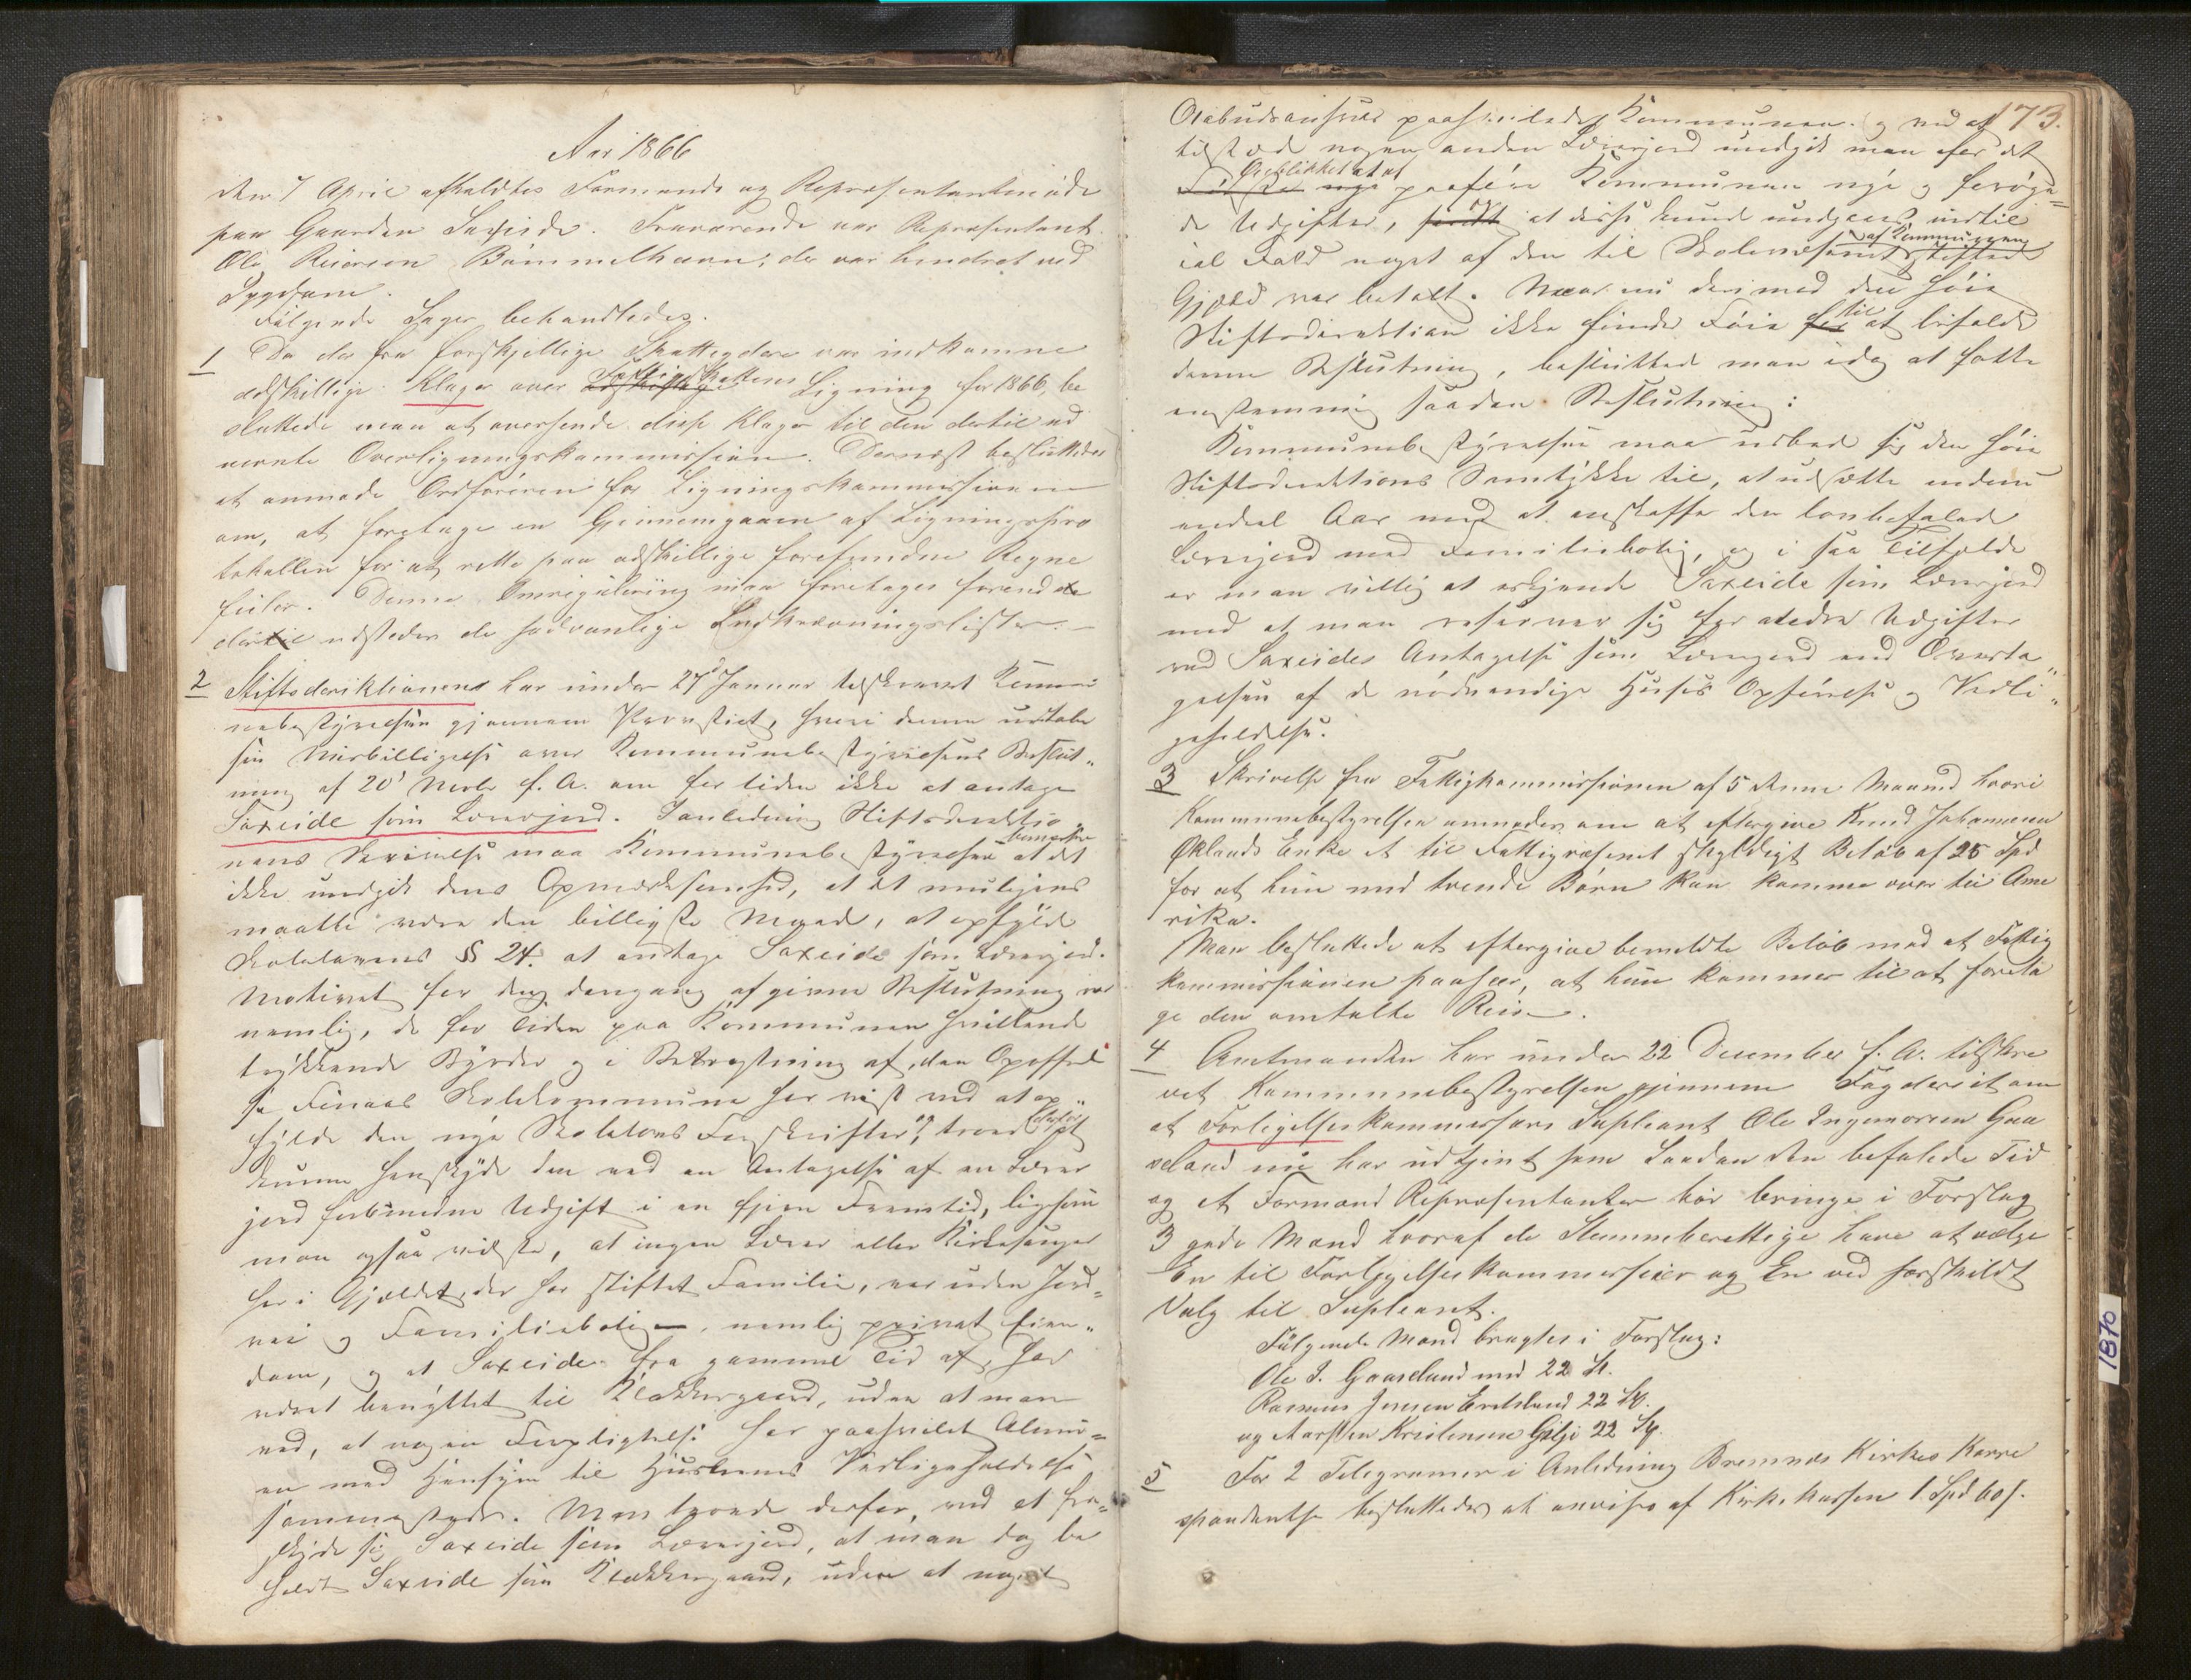 Aar 1866
den 7 April afholdtes Formands og Repræsentantmøde
paa Gaarden Saxeide. Fraværende var Repræsentant
Ole Reierson Bømmelhavn; der var hindret ved
Sygdom.
Følgende Sager behandledes.
1 Da der fra forskjellige Skatteydere var indkomne
adskillige Klager over Fattigskattens Ligning for 1866, be
sluttede man at oversende disse Klager til den dertil ud
nævnte Overligningskommission. Dernæst besluttedes
at anmode Ordføreren for Ligningskommissionen
om, at foretage en Gjennemgaaen af Ligningspro
tokollen for at rette paa adskillige forefundne Regne
feiler. Denne Omregulering maa foretages forend de
dertil udsteder de sædvanlige Indkrævningslister.-
2 Stiftsdirektionen har under 27de Januar tilskrevet Kommu
nebestyrelsen gjennem Provstiet, hvori denne udtaler
sin Misbilligelse over Kommunebestyrelsens Beslut„
ning af 20' Novbr f. A. om for tiden ikke at antage
Saxeide som Lærerjord. I anledning Stiftsdirektio„
nens Skrivelse maa Kommunebestyrelsen bemærke at det
ikke undgik dens Opmærksomhed, at det muligens
maatte være den billigste Maade, at opfylde
Skolelovens § 24. at antage Saxeide som Lærerjord.
Motivet for den dengang afgivne Beslutning var
nemlig, de for Tiden paa Kommunen hvilende
trykkende Byrder og i Betragtning af, den Opoffrel
se Finaas Skolekommune har vist ved at op„
fylde den nye Skolelovs Forskrifter, og troede derfor at
kunne henskyde den ved en Antagelse af en Lærer
jord forbundne Udgift i en fjern Fremtid, ligesom
man ogsaa vidste, at ingen Lærer eller Kirkesanger
her i Gjældet, der har stiftet Familie, var uden Jord„
vei og Familiebolig, nemlig privat Eien„
dom, og at Saxeide fra gammel Tid af, har
været benyttet til Klokkergaard, uden at man
ved, at nogen Forpligtelse har paahvilet Almu„
en med Hensyn til Husenes Vedligeholdelse
sammesteds. Man troede derfor, ved at fra„
skyde sig Saxeide som Lærerjord, at man dog be
holdt Saxeide som Klokkergaard, uden at noget
173.
Aabudsansvar paahvilede Kommunen og ved at
tilstede nogen anden Lærerjord undgik man for det
Øieblikket at at paaføre Kommunen nye og forøge„
de Udgifter, og at disse kunde undgaaes indtil
ial Fald noget af den til Skolevæsenet af Kommunen stiftede
Gjæld var betalt. Naar nu derimod den høie
Stiftsdirektion ikke finder Føie til at bifalde
denne Beslutning, besluttede man idag at fatte
enstemmig saadan Beslutning:
Kommunebestyrelsen maa udbede sig den høie
Stiftsdirektions Samtykke til, at udsætte endnu
endeel Aar med at anskaffe den lovbefalede
Lærerjord med Familiebolig, og i saa Tilfælde
er man villig at erkjende Saxeide som Lærerjord
med at man reserver sig for Udgifter
ved Saxeides Antagelse som Lærerjord end Overta„
gelsen af de nødvendige Huses Opførelse og Vedli„
geholdelse.
3 Skrivelse fra Fattigkommissionen af 5 denne Maaned hvori
Kommunebestyrelsen anmodes om at eftergive Knud Johannesen
Øklands Enke et til Fattigvæsenet skyldigt Beløb af 25 Spd
for at hun med trende Børn kan komme over til Ame
rika.
Man besluttede at eftergive bemeldte Beløb med at Fattig
kommissionen paaseer, at hun kommer til at foreta
ge den omtalte Reise.
4 Amtmanden har under 22 December f. A. tilskre
vet Kommunebestyrelsen gjennem Fogderiet om
at Forligelseskommissærs Supleant Ole Ingemorsen Gaa
seland nu har udtjent som Saadan den befalede Tid
og at Formænd Repræsentanter bør bringe i Forslag
3 gode Mænd hvoraf de Stemmeberettige have at vælge
En til Forligelseskommissær og En ved særskildt
Valg til Supleant.
Følgende Mænd bragtes i Forslag:
Ole I. Gaaseland med 22 St.
Rasmus Jensen Eidesland 22 St.
og Karsten Kristensen Gilje 22 St.
5 For 2 Telegramer i Anledning Bremnæs Kirkes Korre
spondentse besluttedes at anvises af Kirkekassen 1 Spd 60 s.
1870